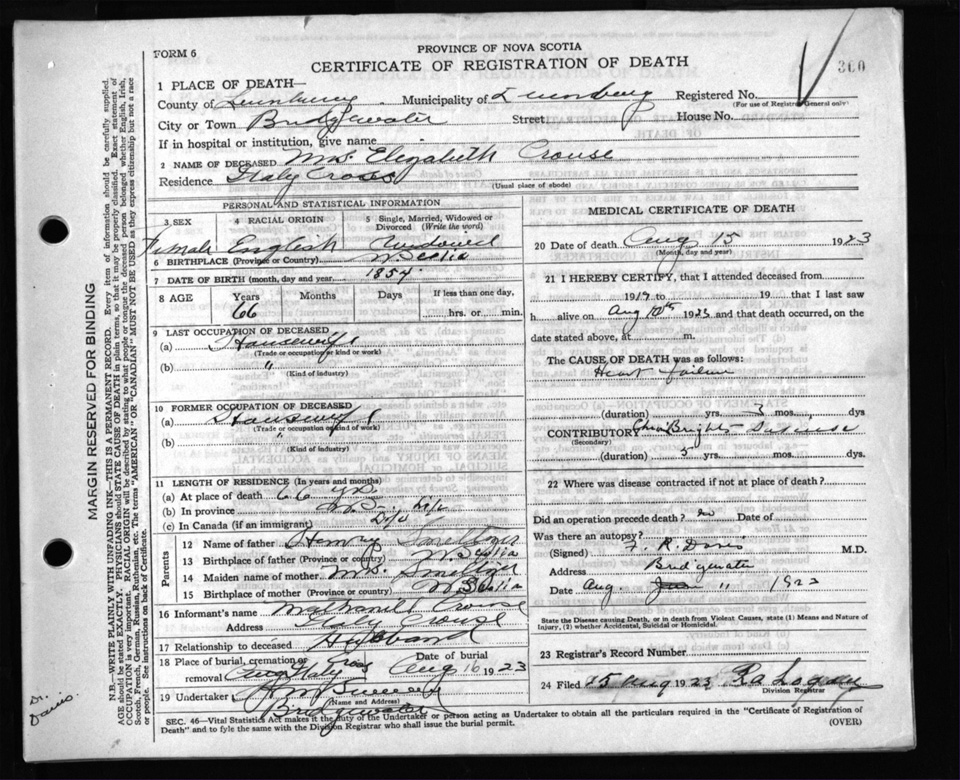 FORM 6
PROVINCE OF NOVA SCOTIA
CERTIFICATE OF REGISTRATION OF DEATH
300
1 PLACE OF DEATH—
County of Lunenburg Municipality of Lunenburg Registered No.
(For use of Registrar General only)
City or Town Bridgewater Street: House No.
If in hospital or institution, give name
2 NAME OF DECEASED Mrs. Elizabeth Crouse
Residence Italy Cross
(Usual place of abode)
PERSONAL AND STATISTICAL INFORMATION
3 SEX 4 RACIAL ORIGIN 5 Single, Married, Widowed or Divorced (Write the word)
Female English
6 BIRTHPLACE (Province or Country) N Scotia
7 DATE OF BIRTH (month, day and year) 1854
8 AGE Years Months Days If less than one day,
66 hrs. or min.
9 LAST OCCUPATION OF DECEASED
(a) Housewife
(Trade or occupation or kind of work)
(b) "
(Kind of industry)
10 FORMER OCCUPATION OF DECEASED
(a) Housewife
(Trade or occupation or kind of work)
(b) "
(Kind of industry)
11 LENGTH OF RESIDENCE (In years and months)
(a) At place of death 66 yrs
(b) In province N.S. life
(c) In Canada (if an immigrant) Do
Parents
12 Name of father Henry
13 Birthplace of father (Province or country) N Scotia
14 Maiden name of mother Mrs. Smeltzer
15 Birthplace of mother (Province or country) N Scotia
16 Informant's name Nathaniel Crouse
Address Italy Crouse
17 Relationship to deceased Husband
18 Place of burial, cremation or removal Italy Cross Date of burial Aug 16 1923
19 Undertaker
(Name and Address)
Bridgewater
MEDICAL CERTIFICATE OF DEATH
20 Date of death Aug 15 1923
(Month, day and year)
21 I HEREBY CERTIFY, that I attended deceased from
1919 to 19 that I last saw
h alive on Aug 10th 1923 and that death occurred, on the
date stated above, at m.
The CAUSE OF DEATH was as follows:
Heart failure
(duration) yrs. 3 mos. dys
CONTRIBUTORY Chron Brights Disease
(Secondary)
(duration) 5 yrs. mos. dys.
22 Where was disease contracted if not at place of death?
Did an operation precede death? no Date of
Was there an autopsy?
(Signed) F. R. Davis M.D.
Address Bridgewater
Date Aug. 11 1923
State the Disease causing Death, or in death from Violent Causes, state (1) Means and Nature of Injury, (2) whether Accidental, Suicidal or Homicidal.
23 Registrar's Record Number
24 Filed 15 Aug 1923
Division Registrar
SEC. 46—Vital Statistics Act makes it the duty of the Undertaker or person acting as Undertaker to obtain all the particulars required in the "Certificate of Registration of
Death" and to fyle the same with the Division Registrar who shall issue the burial permit.
(OVER)
MARGIN RESERVED FOR BINDING
N.B.—WRITE PLAINLY WITH UNFADING INK—THIS IS A PERMANENT RECORD. Every item of information should be carefully supplied.
AGE should be stated EXACTLY. PHYSICIANS should STATE CAUSE OF DEATH in plain terms, so that it may be properly classified. Exact statement of
OCCUPATION is very important. RACIAL ORIGIN will be described by stating to what people or tongue the deceased person belonged whether English, Irish,
Scotch, French, German, Russian, Ruthenian, etc. The terms "AMERICAN" OR "CANADIAN" MUST NOT BE USED as they express citizenship but not a race
or people. See instructions on back of Certificate.
Dr.
Davis